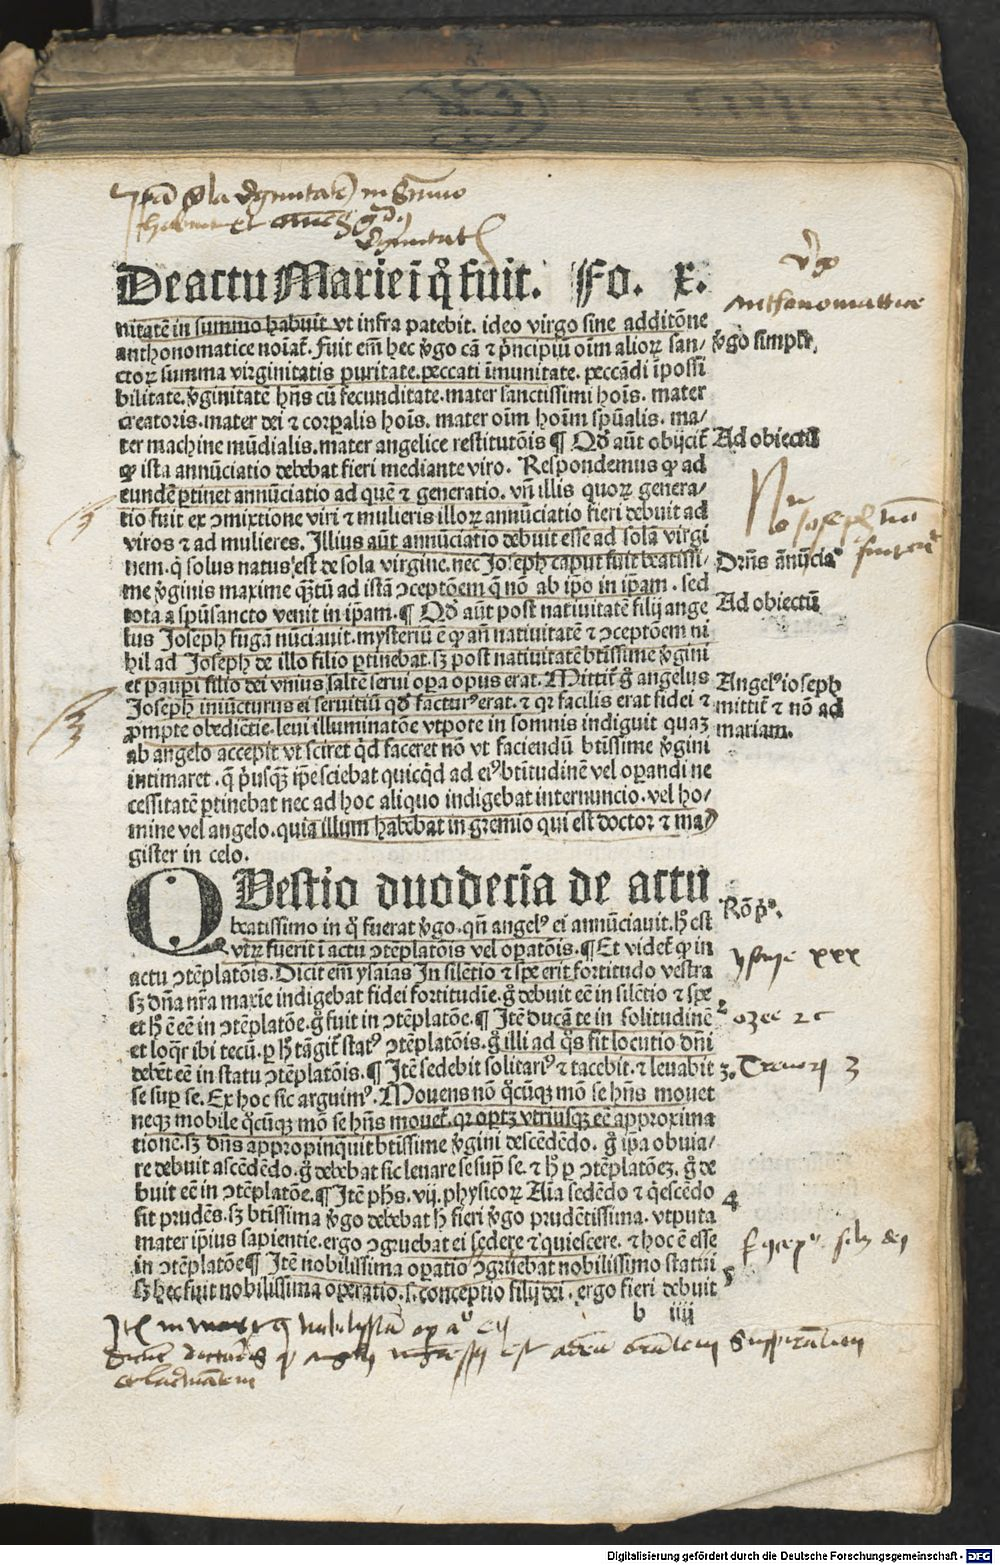 De actu Marie ī q̊ fuit. Fo. x.
nitatē in summo habuit vt infra patebit. ideo virgo sine additōne
anthonomatice noīat̄. Fuit em̄ hec v̄go cā ⁊ p̄ncipiū oīm alioꝝ san⸗
ctoꝝ summa virginitatis puritate. peccati īmunitate. peccādi īpossi
bilitate. v̄ginitatē hn̄s cū fecunditate. mater sanctissimi hoīs. mater
creatoris. mater dei ⁊ corꝑalis hoīs. mater oīm hoīm spūalis. ma⸗
ter machine mūdialis. mater angelice restitutōis ¶ Qd̄ aūt obijcit̄
ꝙ ista annūciatio debebat fieri mediante viro. Respondemus ꝙ ad
eundē ꝑtinet annūciatio ad quē ⁊ generatio. vn̄ illis quoꝝ genera⸗
tio fuit ex ꝯmixtione viri ⁊ mulieris illoꝝ annūciatio fieri debuit ad
viros ⁊ ad mulieres. Illius aūt annūciatio debuit esse ad solā virgi
nem. q̄ solus natus est de sola virgine. nec Joseph caput fuit beatissi⸗
me v̄ginis maxime q̄ꝫtū ad istā ꝯceptōem q̄ nō ab ip̄o in ip̄am. sed
tota a spūsancto venit in ip̄am. ¶ Qd̄ aūt post natiuitatē filij ange
lus Joseph fugā nūciauit. mysteriū ē ꝙ an̄ natiuitatē ⁊ ꝯceptōem ni
hil ad Joseph de illo filio ꝑtinebat. sꝫ post natiuitatē btīssime v̄gini
et pauꝑi filio dei vnius saltē serui oꝑa opus erat. Mittit̄ g̊ angelus
Joseph iniūcturus ei seruitiū qd̄ factur⁹ erat. ⁊ qꝛ facilis erat fidei ⁊
ꝓmpte obediētie. leui illuminatōe vtpote in somnis indiguit quaꝫ
ab angelo accepit vt sciret qd̄ faceret nō vt faciendū btīssime v̄gini
intimaret. q̄ p̄usqꝫ ip̄e sciebat quicqd̄ ad ei⁹ btītudinē vel oꝑandi ne
cessitatē ꝑtinebat nec ad hoc aliquo indigebat internuncio. vel ho⸗
mine vel angelo. quia illum habebat in gremio qui est doctor ⁊ ma⸗
gister in celo.
QVestio duodecīa de actu
beatissimo in q̊ fuerat v̄go. qn̄ angel⁹ ei annūciauit. h̄ est
vtꝝ fuerit ī actu ꝯtēplatōis vel oꝑatōis. ¶ Et videt̄ ꝙ in
actu ꝯtēplatōis. Dicit em̄ ysaias In silētio ⁊ spe erit fortitudo vestra
sꝫ dn̄a nr̄a marie indigebat fidei fortitudīe. g̊ debuit eē in silētio ⁊ spe
et h̄ ē eē in ꝯtēplatōe. g̊ fuit in ꝯtēplatōe. ¶ Itē ducā te in solitudinē
et loq̄r ibi tecū. ꝑ h̄ tāgit̄ stat⁹ ꝯtēplatōis. g̊ illi ad q̊s fit locutio dn̄i
debēt eē in statu ꝯtēplatōis. ¶ Itē sedebit solitari⁹ ⁊ tacebit. ⁊ leuabit
se suꝑ se. Ex hoc sic arguim⁹. Mouens nō q̊cūqꝫ mō se hn̄s mouet
neqꝫ mobile q̊cūqꝫ mō se hn̄s mouet̄. qꝛ optꝫ vtriusqꝫ eē approxima
tionē. sꝫ dn̄s appropinquit btīssime v̄gini descēdēdo. g̊ ip̄a obuia⸗
re debuit ascēdēdo. g̊ debebat sic leuare se suꝑ se. ⁊ h̄ ꝑ ꝯtēplatōeꝫ. g̊ de
buit eē in ꝯtēplatōe. ¶ Itē ph̄s. vij. physicoꝝ Aīa sedēdo ⁊ q̄escēdo
fit prudēs. sꝫ btīssima v̄go debebat h̄ fieri v̄go prudētissima. vtputa
mater ip̄ius sapientie. ergo ꝯgruebat ei sedere ⁊ quiescere. ⁊ hoc ē esse
in ꝯtēplatōe ¶ Itē nobilissima oꝑatio ꝯgruebat nobilissimo statui
sꝫ hec fuit nobilissima operatio. s. conceptio filij dei. ergo fieri debuit
b iiij
anthonomattice
v̄go simpłr
Ad obiectū
Drn̄s an̄ūcia⁰
Ad obiectū
Angel⁹ ioseph
mittit̄ ⁊ nō ad
mariam.
Rō p̄⁰.
ysaye xxx
ozee 2 c
3. Trenorū 3
4
5